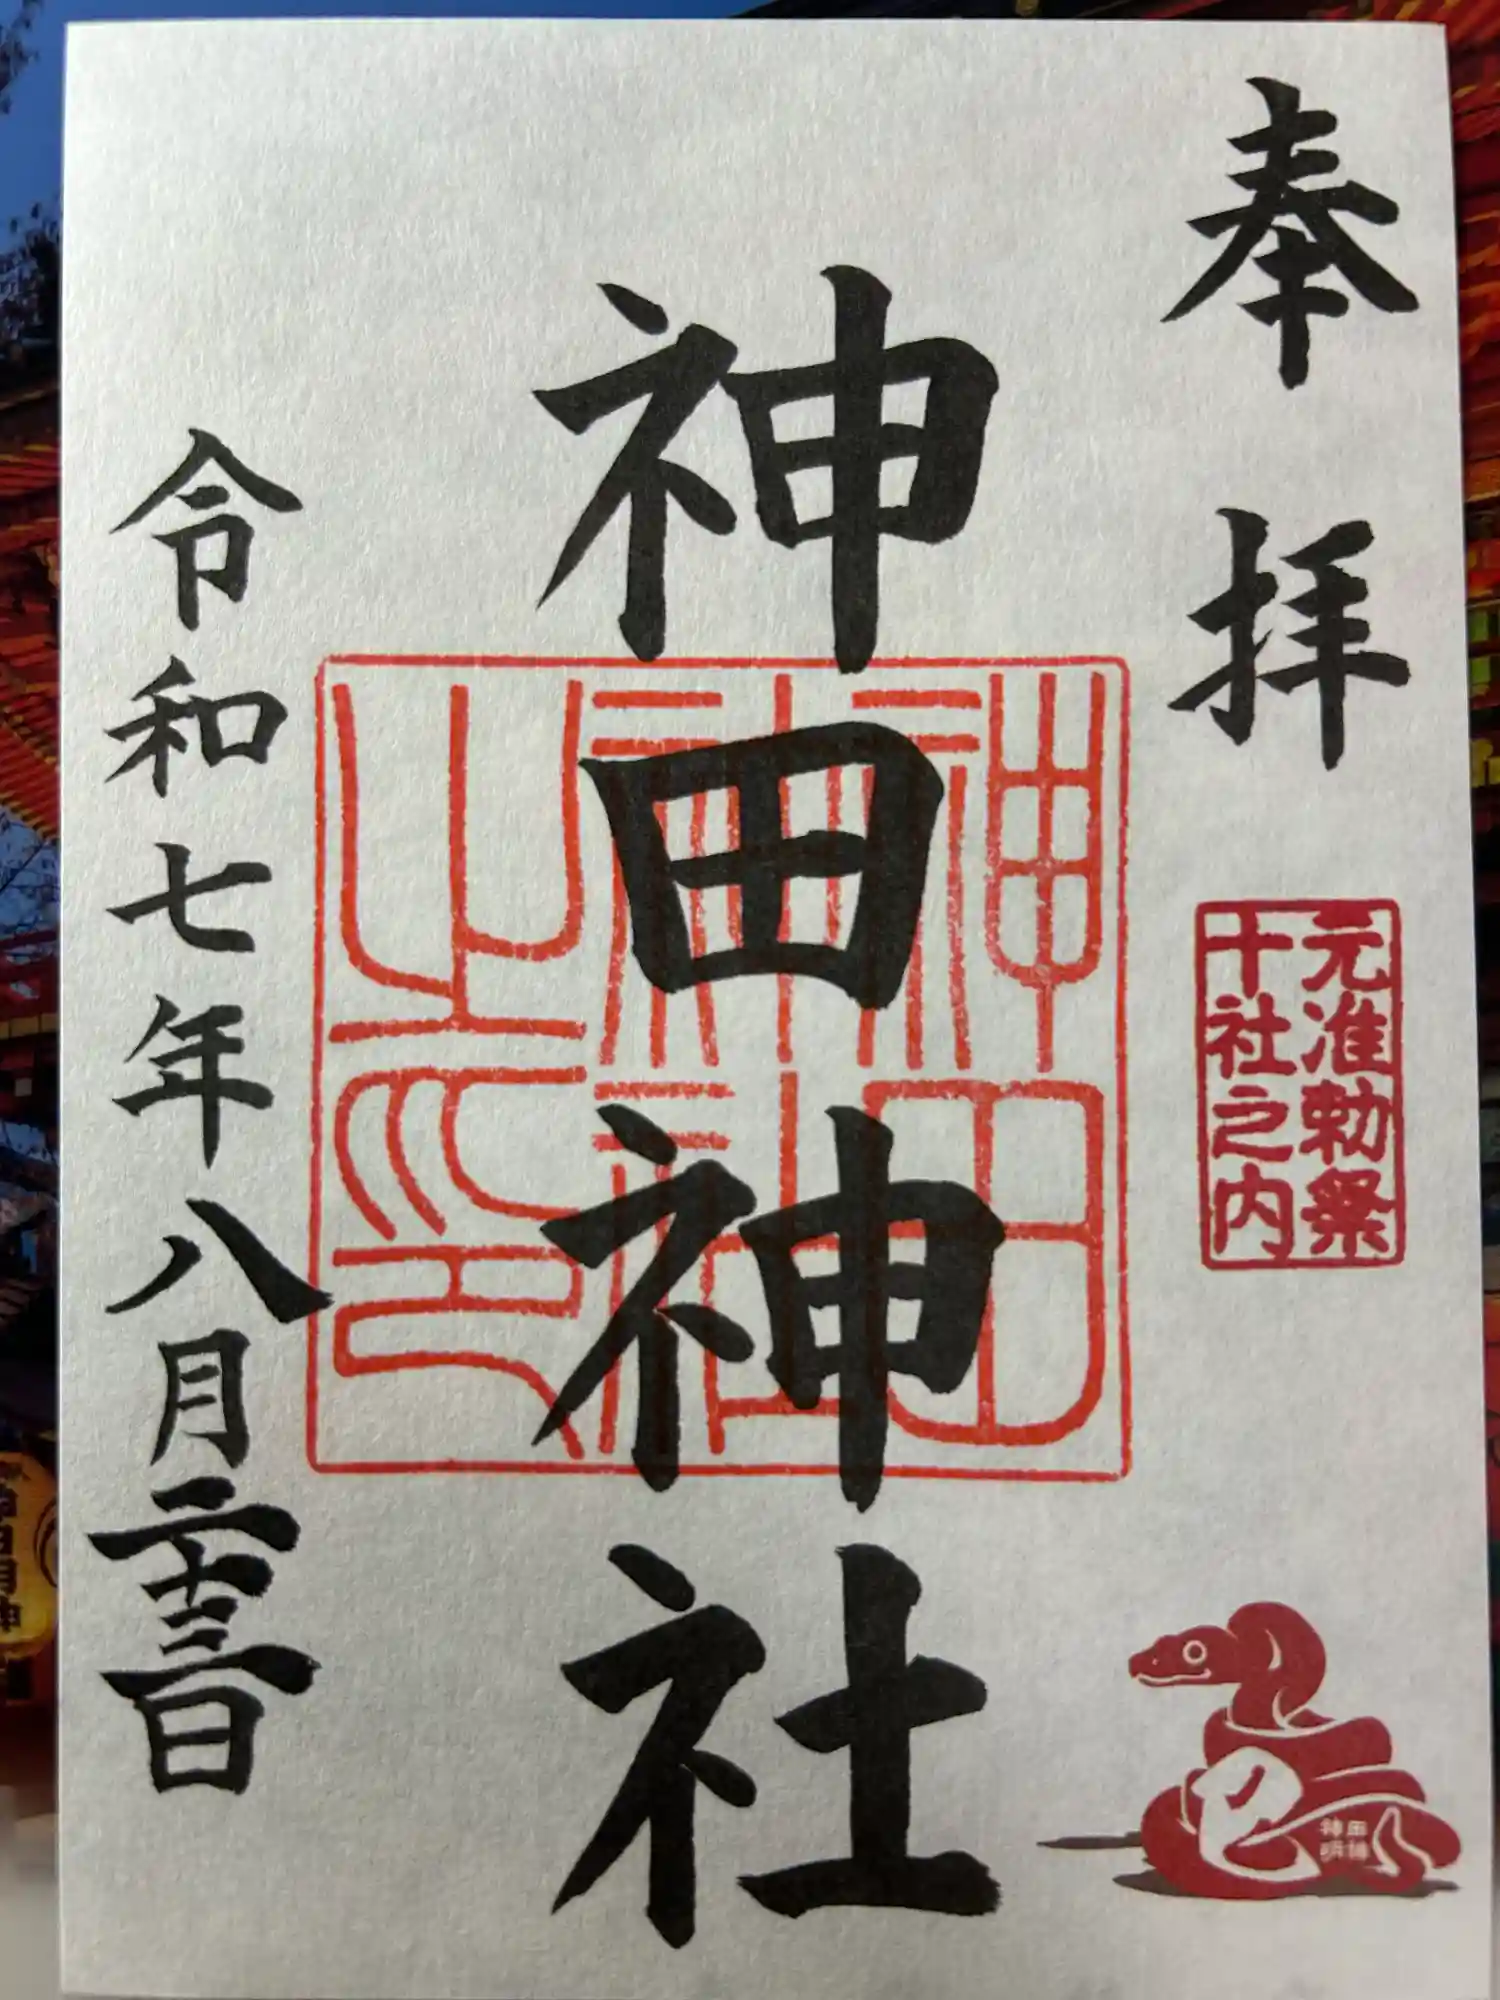 奉拝
元准勅祭
十社之内
巳
神田
明神
神田神社
神田
神社
之印
令和七年八月二十三日